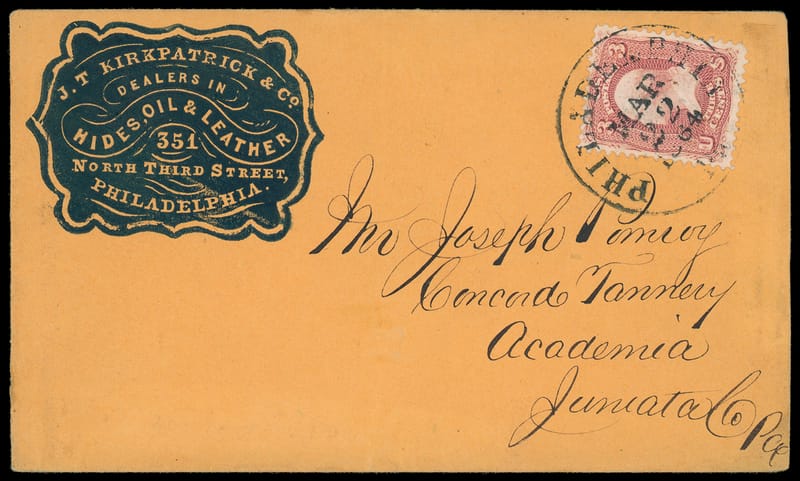 J. T KIRKPATRICK & Co
DEALERS IN
HIDES, OIL & LEATHER
351
NORTH THIRD STREET,
PHILADELPHIA.
PHILADELPHIA
MAR
22
1864
Mr Joseph Pomroy
Concord Tannery
Academia
Juniata Co
Pa